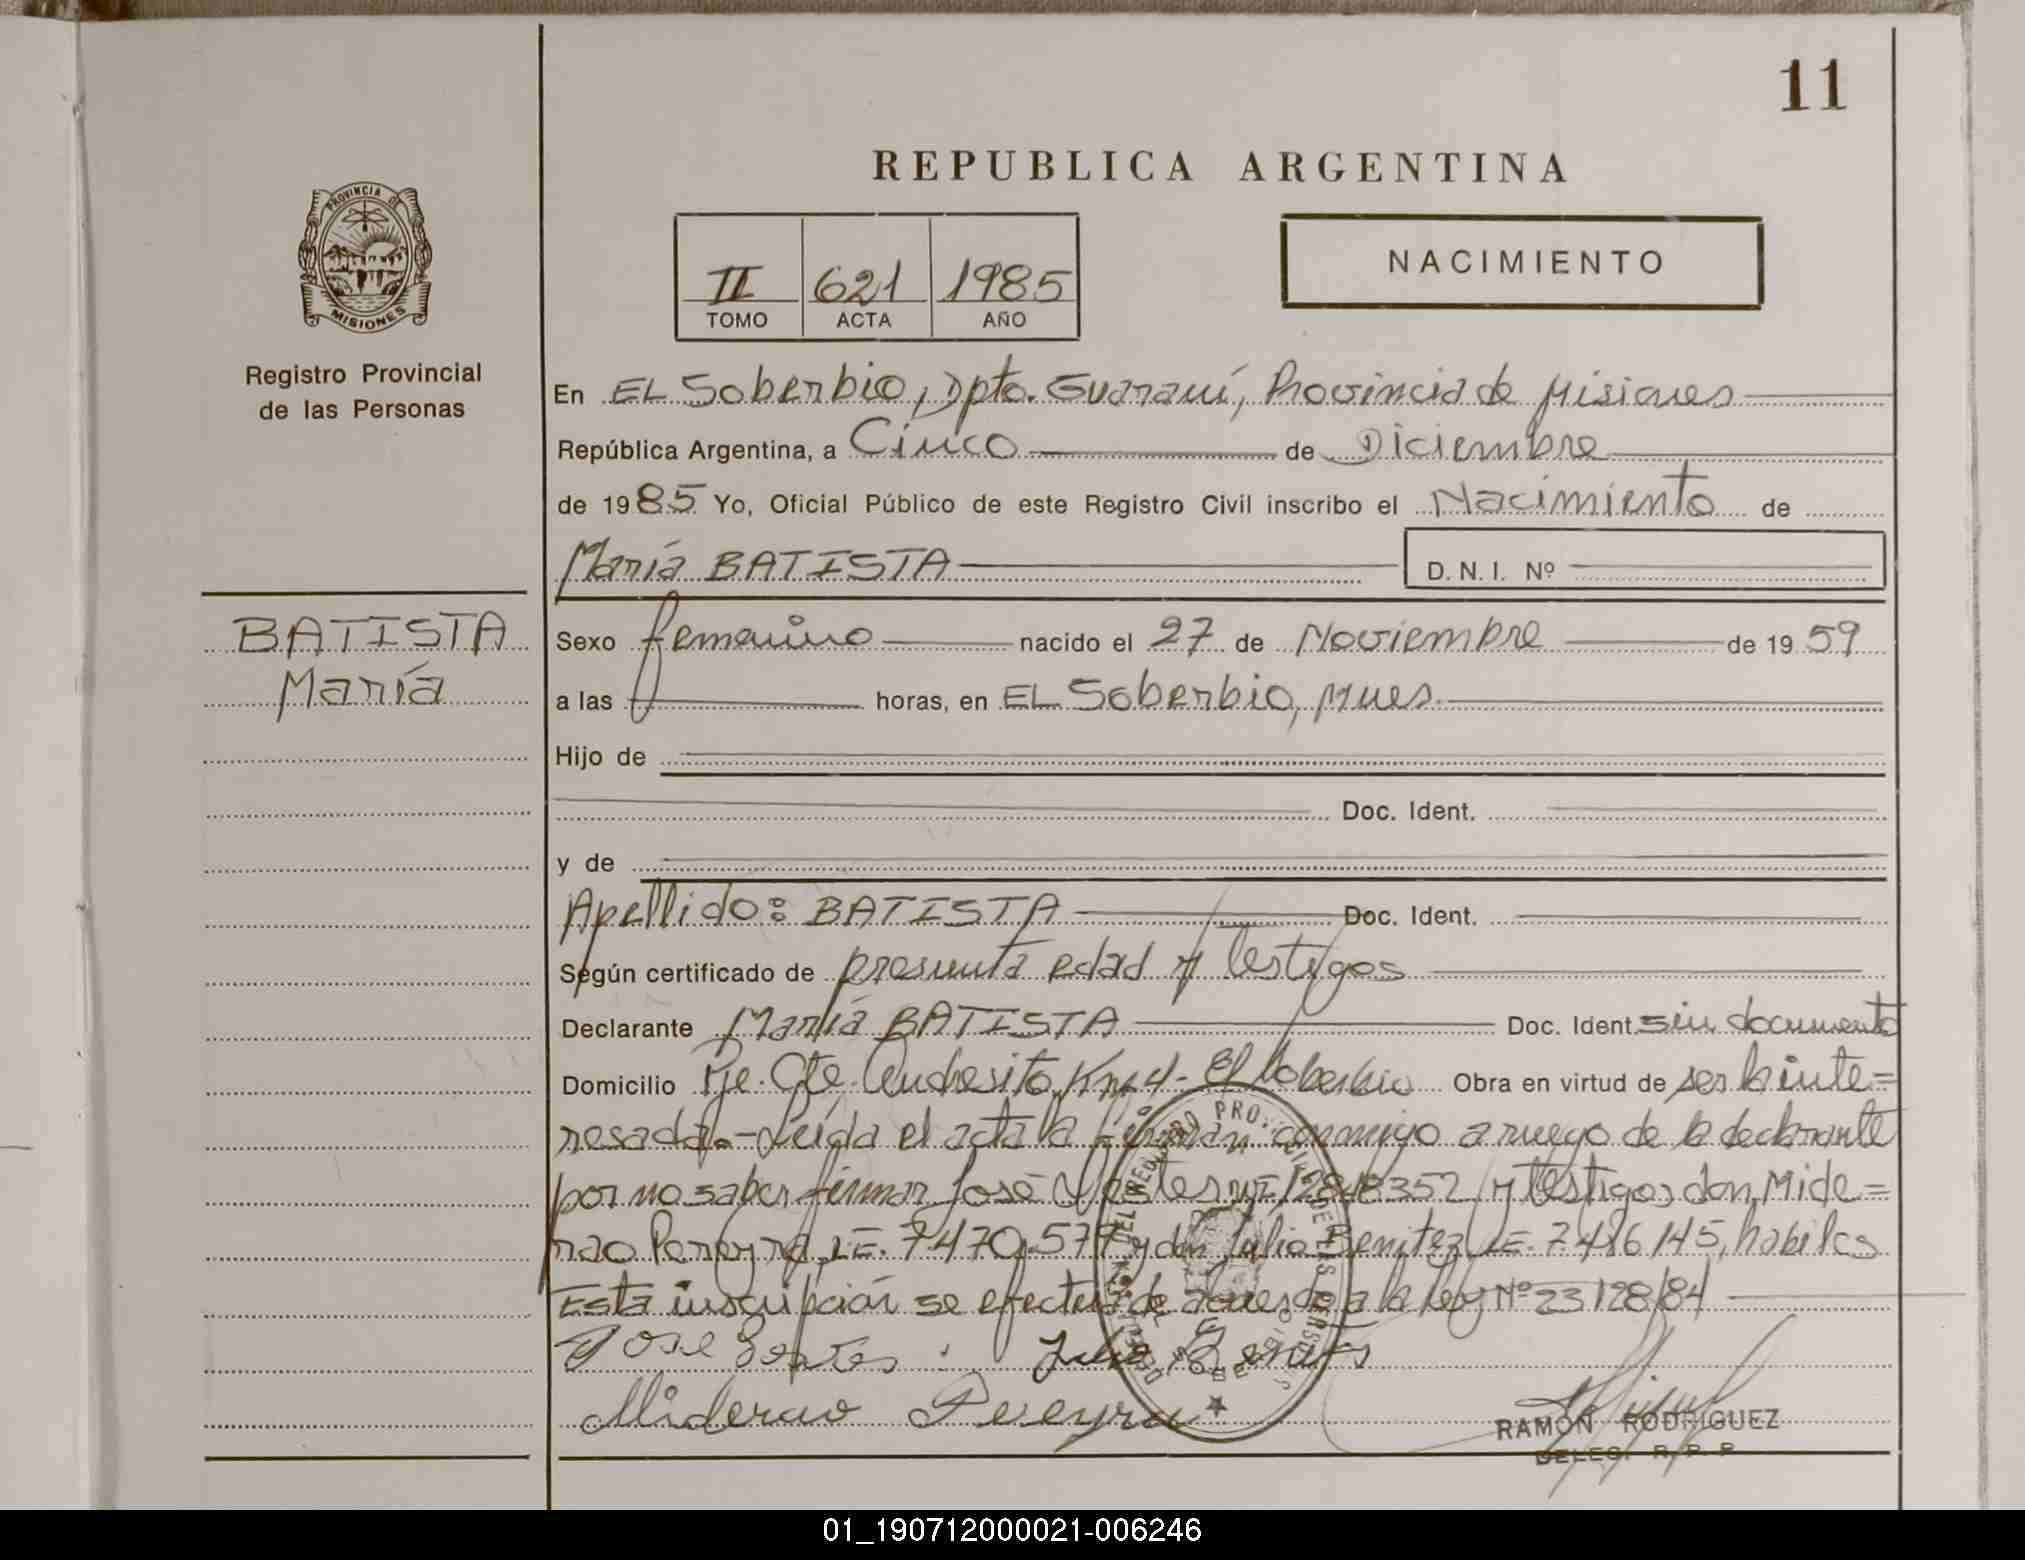 11
REPUBLICA ARGENTINA
PROVINCIA DE
MISIONES
Registro Provincial
de las Personas
II 621 1985
TOMO ACTA AÑO
NACIMIENTO
En EL Soberbio, Dpto. Guaraní, Provincia de Misiones
República Argentina, a Cinco de Diciembre
de 1985 Yo, Oficial Público de este Registro Civil inscribo el Nacimiento de
María BATISTA D.N.I. Nº
BATISTA
María
Sexo femenino nacido el 27 de Noviembre de 1959
a las horas, en EL Soberbio, Mnes.
Hijo de
Doc. Ident.
y de
Apellido: BATISTA Doc. Ident.
Según certificado de presunta edad y testigos
Declarante María BATISTA Doc. Ident. sin documento
Domicilio Pje. Cte. Andresito, Km 4 - El Soberbio Obra en virtud de ser la inte=
resada.- Leída el acta la firman conmigo a ruego de la declarante
por no saber firmar José 12848352 y testigos don Mide=
rao Pereyra, LE. 7470.577 y don Julio Benitez LE. 7.486.145, hábiles
Esta inscripción se efectua de acuerdo a la ley Nº 23128/84
Jose Julio Benites
Miderao Pereyra
RAMÓN RODRIGUEZ
DELEG. R. P. P
01_190712000021-006246